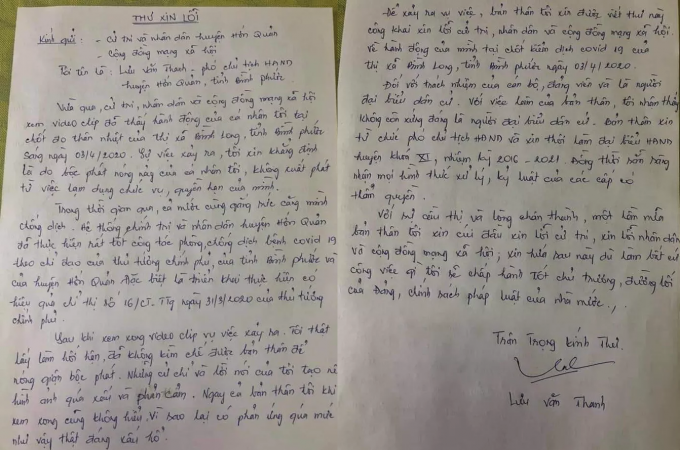 THƯ XIN LỖI
Kính gửi: - Cử tri và nhân dân huyện Hớn Quản
- Cộng đồng mạng xã hội
Tôi tên là: Lưu Văn Thanh - phó chủ tịch HĐND
huyện Hớn Quản, tỉnh Bình Phước
Vừa qua, cử tri, nhân dân và cộng đồng mạng xã hội
xem video clip đã thấy hành động của cá nhân tôi tại
chốt đo thân nhiệt của thị xã Bình Long, tỉnh Bình Phước
sáng ngày 03/4/2020. Sự việc xảy ra, tôi xin khẳng định
là do bộc phát nóng nảy của cá nhân tôi, không xuất phát
từ việc lạm dụng chức vụ, quyền hạn của mình.
Trong thời gian qua, cả nước căng mình
chống dịch. Hệ thống chính trị và nhân dân huyện Hớn Quản
đã thực hiện rất tốt công tác phòng, chống dịch bệnh covid 19
theo chỉ đạo của thủ tướng chính phủ, của tỉnh Bình Phước và
của huyện Hớn Quản. Đặc biệt là triển khai thực hiện có
hiệu quả chỉ thị số 16/CT. TTg ngày 31/3/2020 của thủ tướng
chính phủ.
Sau khi xem xong video clip vụ việc xảy ra. Tôi thật
lấy làm hối hận, đã không kìm chế được bản thân để
nóng giận bộc phát. Những cử chỉ và lời nói của tôi tạo
hình ảnh quá xấu và phản cảm. Ngay cả bản thân tôi khi
xem xong cũng không hiểu, vì sao lại có phản ứng quá mức
như vậy thật đáng xấu hổ.
Để xảy ra vụ việc, bản thân tôi xin được viết thư này
công khai xin lỗi cử tri, nhân dân và cộng đồng mạng xã hội.
Về hành động của mình tại chốt kiểm dịch covid 19 của
thị xã Bình Long, tỉnh Bình Phước ngày 03/4/2020.
Đối với trách nhiệm của cán bộ, đảng viên và là người
đại biểu dân cử. Với việc làm của bản thân, tôi nhận thấy
không còn xứng đáng là người đại biểu dân cử. Bản thân xin
từ chức phó chủ tịch HĐND và xin thôi làm đại biểu HĐND
huyện khoá XI, nhiệm kỳ 2016 - 2021. Đồng thời sẵn sàng
nhận mọi hình thức xử lý, kỷ luật của các cấp có
thẩm quyền.
Với sự cầu thị và lòng chân thành, một lần nữa
bản thân tôi xin cúi đầu xin lỗi cử tri, xin lỗi nhân dân
và cộng đồng mạng xã hội, xin hứa sau này dù làm bất cứ
công việc gì tôi sẽ chấp hành tốt chủ trương, đường lối
của Đảng, chính sách pháp luật của nhà nước.,.
Trân Trọng kính Thư.
Lưu Văn Thanh